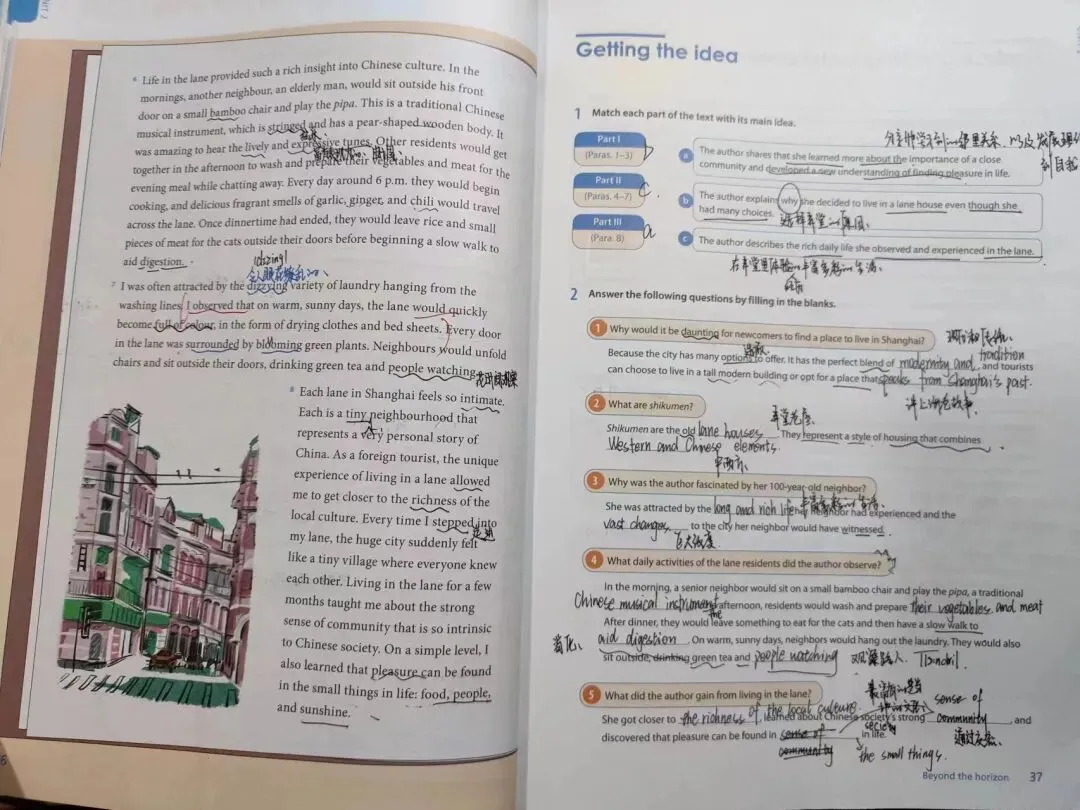 6 Life in the lane provided such a rich insight into Chinese culture. In the
mornings, another neighbour, an elderly man, would sit outside his front
door on a small bamboo chair and play the pipa. This is a traditional Chinese
musical instrument, which is stringed and has a pear-shaped wooden body. It
was amazing to hear the lively and expressive tunes. Other residents would get
together in the afternoon to wash and prepare their vegetables and meat for the
evening meal while chatting away. Every day around 6 p.m. they would begin
cooking, and delicious fragrant smells of garlic, ginger, and chili would travel
across the lane. Once dinnertime had ended, they would leave rice and small
pieces of meat for the cats outside their doors before beginning a slow walk to
aid digestion.
令人眼花缭乱的
7 I was often attracted by the dizzying variety of laundry hanging from the
washing lines. I observed that on warm, sunny days, the lane would quickly
become full of colour, in the form of drying clothes and bed sheets. Every door
in the lane was surrounded by blooming green plants. Neighbours would unfold
chairs and sit outside their doors, drinking green tea and people watching.
8 Each lane in Shanghai feels so intimate.
Each is a tiny neighbourhood that
represents a very personal story of
China. As a foreign tourist, the unique
experience of living in a lane allowed
me to get closer to the richness of the
local culture. Every time I stepped into
走进
my lane, the huge city suddenly felt
like a tiny village where everyone knew
each other. Living in the lane for a few
months taught me about the strong
sense of community that is so intrinsic
to Chinese society. On a simple level, I
also learned that pleasure can be found
in the small things in life: food, people,
and sunshine.
Getting the idea
1 Match each part of the text with its main idea.
Part I
(Paras. 1–3) b
Part II
(Paras. 4–7) c.
Part III
(Para. 8) a
a The author shares that she learned more about the importance of a close
community and developed a new understanding of finding pleasure in life.
b The author explains why she decided to live in a lane house even though she
had many choices. 选择弄堂的原因.
c The author describes the rich daily life she observed and experienced in the lane.
在弄堂里体验的丰富多彩的生活.
2 Answer the following questions by filling in the blanks.
1 Why would it be daunting for newcomers to find a place to live in Shanghai?
选择
Because the city has many options to offer. It has the perfect blend of modernity and tradition, and tourists
can choose to live in a tall modern building or opt for a place that speaks from Shanghai's past.
2 What are shikumen?
Shikumen are the old lane houses. They represent a style of housing that combines
Western and Chinese elements.
3 Why was the author fascinated by her 100-year-old neighbor?
She was attracted by the long and rich life her neighbor had experienced and the
vast changes to the city her neighbor would have witnessed.
巨大改变
4 What daily activities of the lane residents did the author observe?
In the morning, a senior neighbor would sit on a small bamboo chair and play the pipa, a traditional
Chinese musical instrument. In the afternoon, residents would wash and prepare their vegetables and meat
After dinner, they would leave something to eat for the cats and then have a slow walk to
消化 aid digestion. On warm, sunny days, neighbors would hang out the laundry. They would also
sit outside, drinking green tea and people watching
5 What did the author gain from living in the lane?
She got closer to the richness of the local culture, learned about Chinese society's strong sense of community, and
discovered that pleasure can be found in sense of community the small things. in life.
Beyond the horizon 37